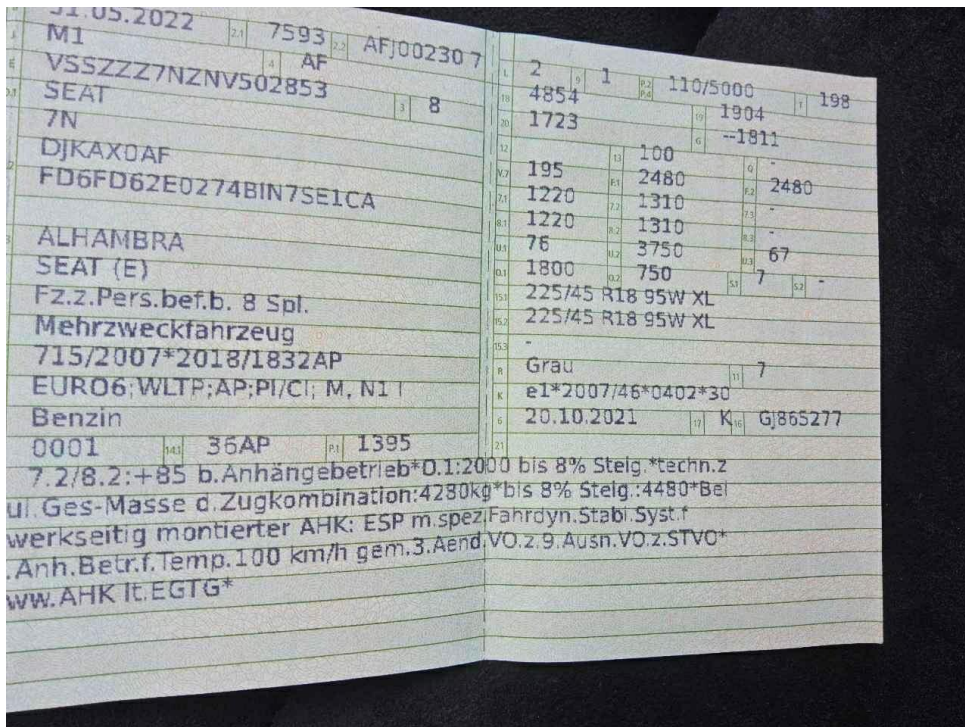 31.05.2022 2.1 7593 2.2 AFJ00230 7
J M1 4 AF
E VSSZZZ7NZNV502853 3 8
D.1 SEAT
7N
DJKAX0AF
FD6FD62E0274BIN7SE1CA
ALHAMBRA
SEAT (E)
Fz.z.Pers.bef.b. 8 Spl.
Mehrzweckfahrzeug
715/2007*2018/1832AP
EURO6;WLTP;AP;PI/CI; M, N1 I
Benzin
0001 14.1 36AP P.1 1395
L 2 9 1 P.2 P.4 110/5000 T 198
18 4854 19 1904
20 1723 G --1811
12 13 100 Q -
V.7 195 F.1 2480 F.2 2480
7.1 1220 7.2 1310 7.3 -
8.1 1220 8.2 1310 8.3 -
U.1 76 U.2 3750 U.3 67
O.1 1800 O.2 750 S.1 7 S.2 -
15.1 225/45 R18 95W XL
15.2 225/45 R18 95W XL
15.3 -
R Grau 11 7
K e1*2007/46*0402*30
6 20.10.2021 17 K 16 GJ865277
21
7.2/8.2:+85 b.Anhängebetrieb*O.1:2000 bis 8% Steig.*techn.z
ul.Ges-Masse d.Zugkombination:4280kg*bis 8% Steig.:4480*Bei
werkseitig montierter AHK: ESP m.spez.Fahrdyn.Stabi.Syst.f
.Anh.Betr.f.Temp.100 km/h gem.3.Aend.VO.z.9.Ausn.VO.z.STVO*
ww.AHK lt.EGTG*